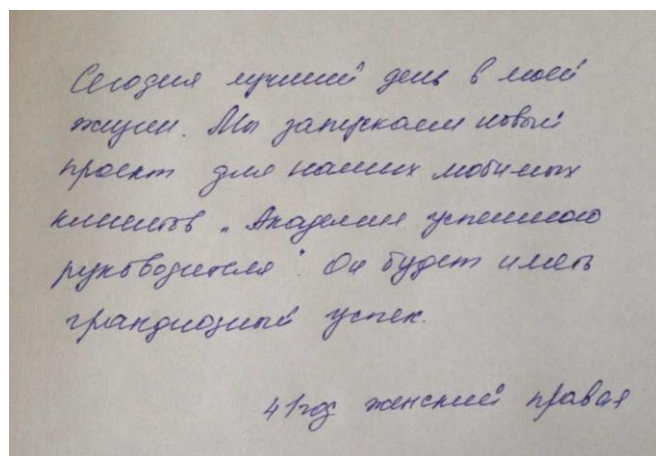 Сегодня лучший день в моей
жизни. Мы запускаем новый
проект для наших любимых
клиентов „Академия успешного
руководителя". Он будет иметь
грандиозный успех.
41 год женский правая